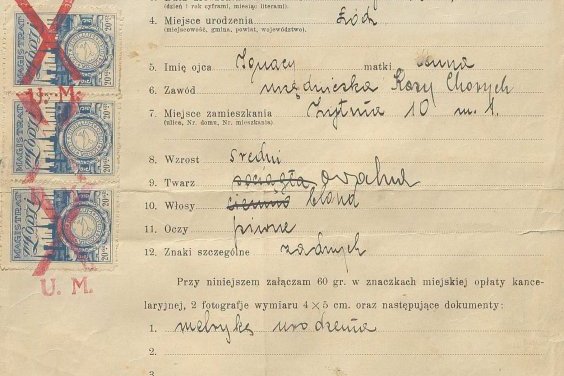 (dzień i rok cyframi, miesiąc literami).
4. Miejsce urodzenia Łódź
(miejscowość, gmina, powiat, województwo).
5. Imię ojca Ignacy matki Anna
6. Zawód urzędniczka Kasy Chorych
7. Miejsce zamieszkania Żytnia 10 m. 1.
(ulica, Nr. domu, Nr. mieszkania)
8. Wzrost średni
9. Twarz ściągła owalna
10. Włosy ciemne blond
11. Oczy piwne
12. Znaki szczególne żadnych
Przy niniejszem załączam 60 gr. w znaczkach miejskiej opłaty kance-
laryjnej, 2 fotografje wymiaru 4×5 cm. oraz następujące dokumenty:
1. metrykę urodzenia
2.
3
MAGISTRAT
20 gr.
U. M.
MAGISTRAT
20 gr.
MAGISTRAT
20 gr.
U. M.